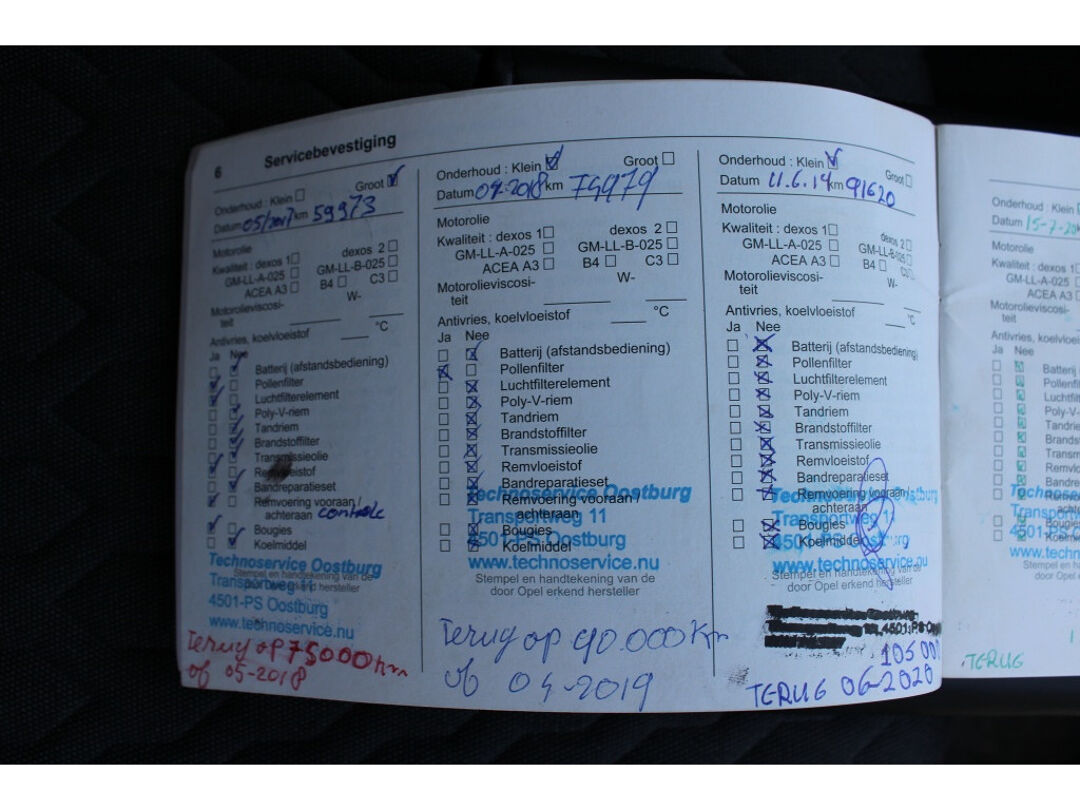 6 Servicebevestiging
Onderhoud : Klein Groot
Datum 05/2017 km 59973
Motorolie
Kwaliteit : dexos 1 dexos 2
GM-LL-A-025 GM-LL-B-025
ACEA A3 B4 C3
Motorolieviscosi-
teit W-
Antivries, koelvloeistof °C
Ja Nee
Batterij (afstandsbediening)
Pollenfilter
Luchtfilterelement
Poly-V-riem
Tandriem
Brandstoffilter
Transmissieolie
Remvloeistof
Bandreparatieset
Remvoering vooraan/
achteraan controle
Bougies
Koelmiddel
Technoservice Oostburg
Transportweg 11
4501-PS Oostburg
www.technoservice.nu
Stempel en handtekening van de
door Opel erkend hersteller
Terug op 75000 km
of 05-2018
Onderhoud : Klein Groot
Datum 04-2018 km 74979
Motorolie
Kwaliteit : dexos 1 dexos 2
GM-LL-A-025 GM-LL-B-025
ACEA A3 B4 C3
Motorolieviscosi-
teit W-
Antivries, koelvloeistof °C
Ja Nee
Batterij (afstandsbediening)
Pollenfilter
Luchtfilterelement
Poly-V-riem
Tandriem
Brandstoffilter
Transmissieolie
Remvloeistof
Bandreparatieset
Remvoering vooraan/
achteraan
Bougies
Koelmiddel
Technoservice Oostburg
Transportweg 11
4501-PS Oostburg
www.technoservice.nu
Stempel en handtekening van de
door Opel erkend hersteller
Terug op 90.000 Km
of 04-2019
Onderhoud : Klein Groot
Datum 11.6.19 km 91620
Motorolie
Kwaliteit : dexos 1 dexos 2
GM-LL-A-025 GM-LL-B-025
ACEA A3 B4 C3
Motorolieviscosi-
teit W-
Antivries, koelvloeistof °C
Ja Nee
Batterij (afstandsbediening)
Pollenfilter
Luchtfilterelement
Poly-V-riem
Tandriem
Brandstoffilter
Transmissieolie
Remvloeistof
Bandreparatieset
Remvoering vooraan/
achteraan
Bougies
Koelmiddel
Technoservice Oostburg
Transportweg 11
4501-PS Oostburg
www.technoservice.nu
Stempel en handtekening van de
door Opel erkend hersteller
TERUG 06-2020
Onderhoud : Klein
Datum 15-7-20
Motorolie
Kwaliteit : dexos 1
GM-LL-A-025
ACEA A3
Motorolieviscosi-
teit
Antivries, koelvloeistof
Ja Nee
TERUG